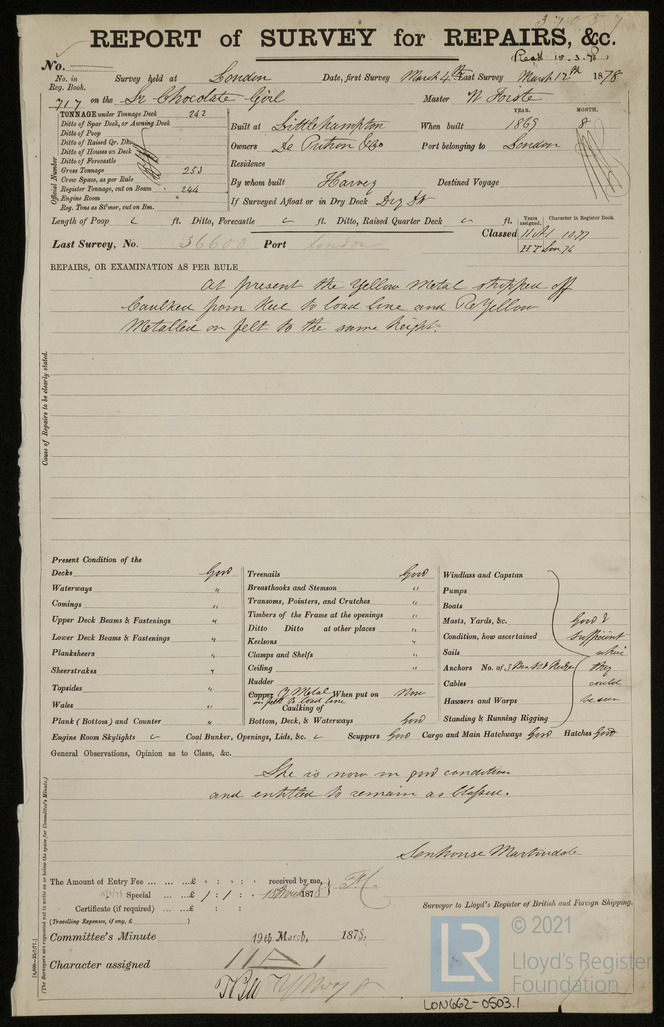 37037
REPORT of SURVEY for REPAIRS, &c.
No.
Recd 15.3.78
No. in Reg. Book. Survey held at London Date, first Survey March 4th Last Survey March 12th 1878
717 on the Sr Chocolate Girl Master
TONNAGE under Tonnage Deck 242
Ditto of Spar Deck, or Awning Deck
Ditto of Poop
Ditto of Raised Qr. Dk.
Ditto of Houses on Deck
Ditto of Forecastle
Gross Tonnage 253
Crew Space, as per Rule
Register Tonnage, cut on Beam 244
Engine Room
Reg. Tons as St'mer, cut on Bm.
Official Number
Built at Littlehampton When built YEAR. 1869 MONTH. 8
Owners De Putron & Co Port belonging to London
Residence
By whom built Harvey Destined Voyage
If Surveyed Afloat or in Dry Dock Dry Dk
Length of Poop ft. Ditto, Forecastle ft. Ditto, Raised Quarter Deck ft.
Years assigned. Character in Register Book.
Last Survey, No. 36600 Port London
Classed 11 A1 10,77
HT Lon 76
REPAIRS, OR EXAMINATION AS PER RULE
At present the Yellow Metal stripped off
Caulked from Keel to load line and ReYellow
Metalled on felt to the same height.
Cause of Repairs to be clearly stated.
Present Condition of the
Decks Good
Waterways "
Comings "
Upper Deck Beams & Fastenings "
Lower Deck Beams & Fastenings "
Planksheers "
Sheerstrakes "
Topsides "
Wales "
Plank (Bottom) and Counter "
Treenails Good
Breasthooks and Stemson "
Transoms, Pointers, and Crutches "
Timbers of the Frame at the openings "
Ditto Ditto at other places "
Keelsons "
Clamps and Shelfs "
Ceiling "
Rudder
Copper Y Metal When put on Now
on felt to load line
Caulking of
Bottom, Deck, & Waterways Good
Windlass and Capstan
Pumps
Boats
Masts, Yards, &c. Good &
Condition, how ascertained sufficient
Sails
Anchors No. of they
Cables could
Hawsers and Warps be seen
Standing & Running Rigging
Engine Room Skylights Coal Bunker, Openings, Lids, &c. Scuppers Good Cargo and Main Hatchways Good Hatches Good
General Observations, Opinion as to Class, &c.
She is now in good condition
and entitled to remain as Classed.
Senhouse Martindale
The Amount of Entry Fee ... ... £ : : received by me,
Special ... £ 1 : 1 : 15 March 1878
Certificate (if required) ... £ :
(Travelling Expenses, if any, £ )
Surveyor to Lloyd's Register of British and Foreign Shipping.
Committee's Minute 19th March, 1878.
Character assigned 11 A 1
(The Surveyors are requested not to write on or below the space for Committee's Minute.)
© 2021
LR
Lloyd's Register
Foundation
LON662-0503.1